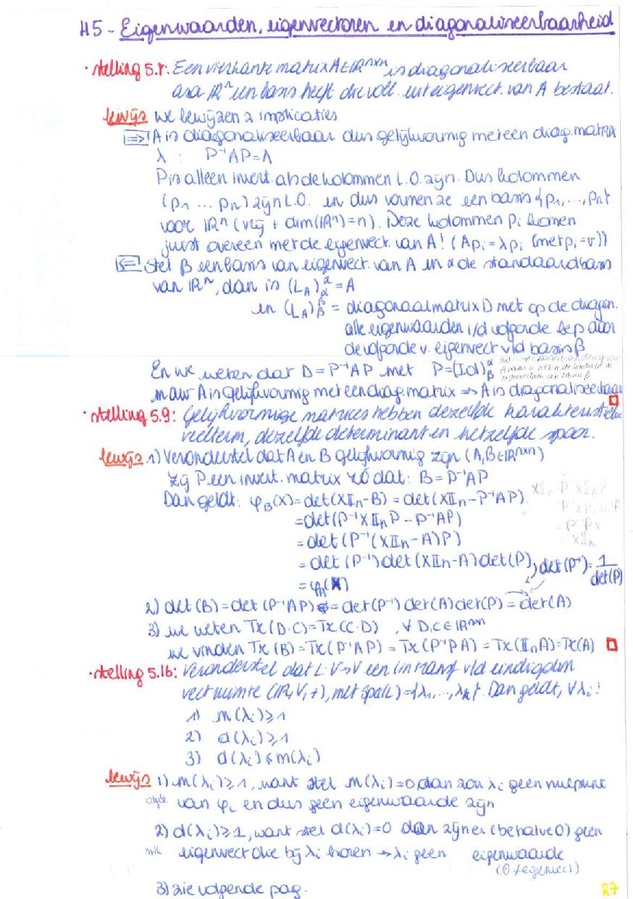 H5 - Eigenwaarden, eigenvectoren en diagonaliseerbaarheid
• stelling 5.8: Een vierkante matrix A∈ℝⁿˣⁿ is diagonaliseerbaar
asa ℝⁿ een basis heeft die voll. uit eigenvect. van A bestaat.
bewijs we bewijzen 2 implicaties
⇒ A is diagonaliseerbaar dus gelijkvormig met een diag. matrix
λ : P⁻¹AP = λ
P is alleen invert. als de kolommen L.O. zijn. Dus kolommen
(p₁ ... pₙ) zijn L.O. en dus vormen ze een basis {p₁, ..., pₙ}
voor ℝⁿ (vrij + dim(ℝⁿ)=n). Deze kolommen pᵢ komen
juist overeen met de eigenvect. van A! (Apᵢ = λpᵢ (met pᵢ=v))
⇐ Stel β een basis van eigenvect. van A en α de standaardbasis
van ℝⁿ, dan is (L_A)_α^α = A
en (L_A)_β^β = diagonaalmatrix D met op de diagon.
alle eigenwaarden i/d volgorde bep. door
de volgorde v. eigenvect v/d basis β
En we weten dat D = P⁻¹AP met P = (Id)_β^α
m.a.w A is gelijkvormig met een diag. matrix ⇒ A is diagonaliseerbaar
• stelling 5.9: Gelijkvormige matrices hebben dezelfde karakteristieke
veelterm, dezelfde determinant en hetzelfde spoor.
bewijs 1) Veronderstel dat A en B gelijkvormig zijn (A,B∈ℝⁿˣⁿ)
Zij P een invert. matrix zó dat: B = P⁻¹AP
Dan geldt: φ_B(X) = det(X𝕀ₙ-B) = det(X𝕀ₙ-P⁻¹AP)
= det(P⁻¹X𝕀ₙP - P⁻¹AP)
= det(P⁻¹(X𝕀ₙ-A)P)
= det(P⁻¹)det(X𝕀ₙ-A)det(P), det(P⁻¹) = 1/det(P)
= φ_A(X)
2) det(B) = det(P⁻¹AP) = det(P⁻¹)det(A)det(P) = det(A)
3) we weten Tr(D.C) = Tr(C.D) , ∀ D,C∈ℝⁿˣⁿ
we vinden Tr(B) = Tr(P⁻¹AP) = Tr(P⁻¹PA) = Tr(𝕀ₙA) = Tr(A)
• stelling 5.16: Veronderstel dat L: V→V een lin transf. v/d eindigdim
vect ruimte (ℝ,V,+), met spec(L) = {λ₁, ..., λₖ}. Dan geldt, ∀λᵢ:
1) m(λᵢ) ≥ 1
2) d(λᵢ) ≥ 1
3) d(λᵢ) ≤ m(λᵢ)
bewijs 1) m(λᵢ) ≥ 1, want stel m(λᵢ)=0 dan zou λᵢ geen nulpunt
van φ_L en dus geen eigenwaarde zijn
2) d(λᵢ) ≥ 1, want stel d(λᵢ)=0 dan zijn er (behalve 0) geen
eigenvect die bij λᵢ horen → λᵢ geen eigenwaarde
(0 ≠ eigenvect)
3) zie volgende pag.
27